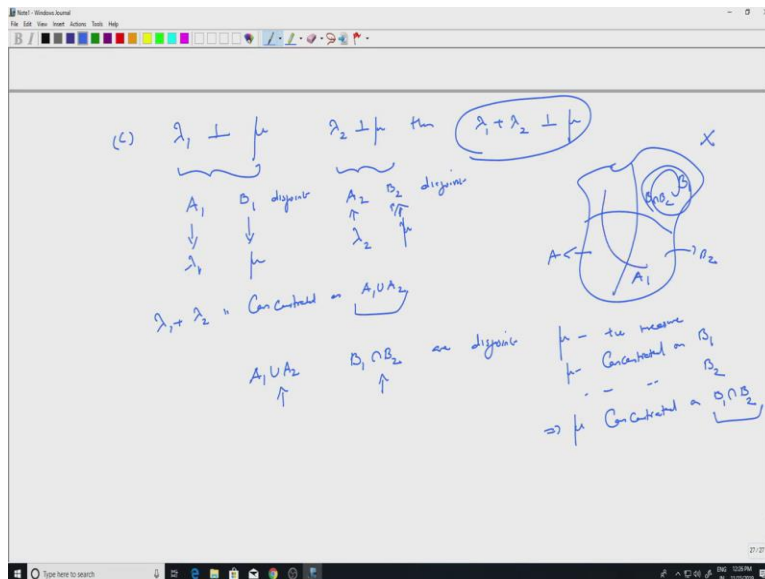 Note1 - Windows Journal
File Edit View Insert Actions Tools Help
(c) λ₁ ⊥ μ λ₂ ⊥ μ then λ₁ + λ₂ ⊥ μ
X
A₁ B₁ disjoint A₂ B₂ disjoint
λ₁ μ λ₂ μ
B₁∩B₂ B₁
A B₂
A₁
λ₁ + λ₂ is Concentrated on A₁∪A₂
A₁∪A₂ B₁∩B₂ are disjoint
μ - +ve measure
μ - Concentrated on B₁
" - - B₂
⇒ μ Concentrated on B₁∩B₂
27/27
Type here to search
ENG 12:26 PM
IN